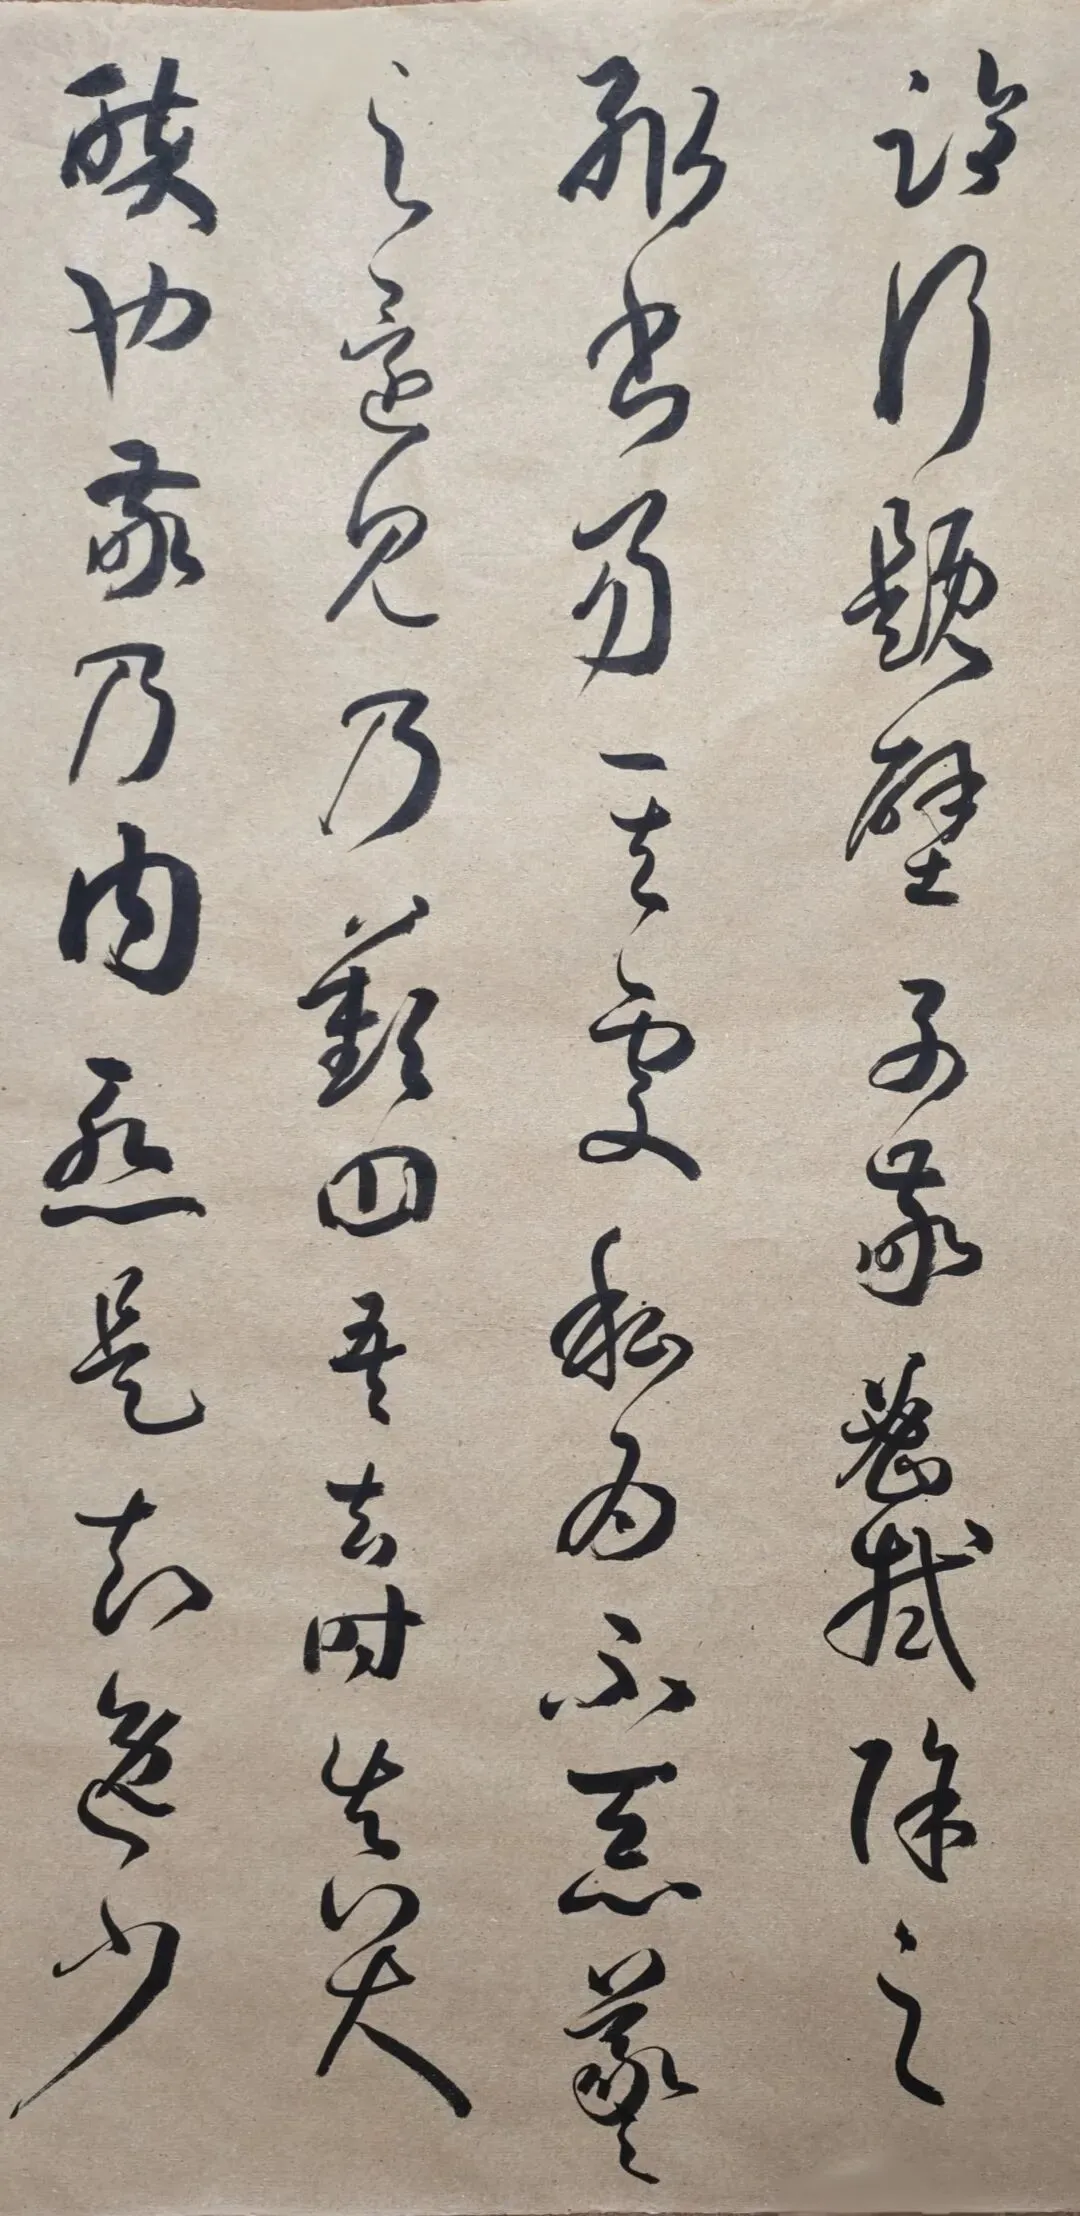 臨行題壁子敬密拭除之
輒書易其處私為不惡羲
之還見乃歎曰吾去時真大
醉也敬乃內慙是知逸少